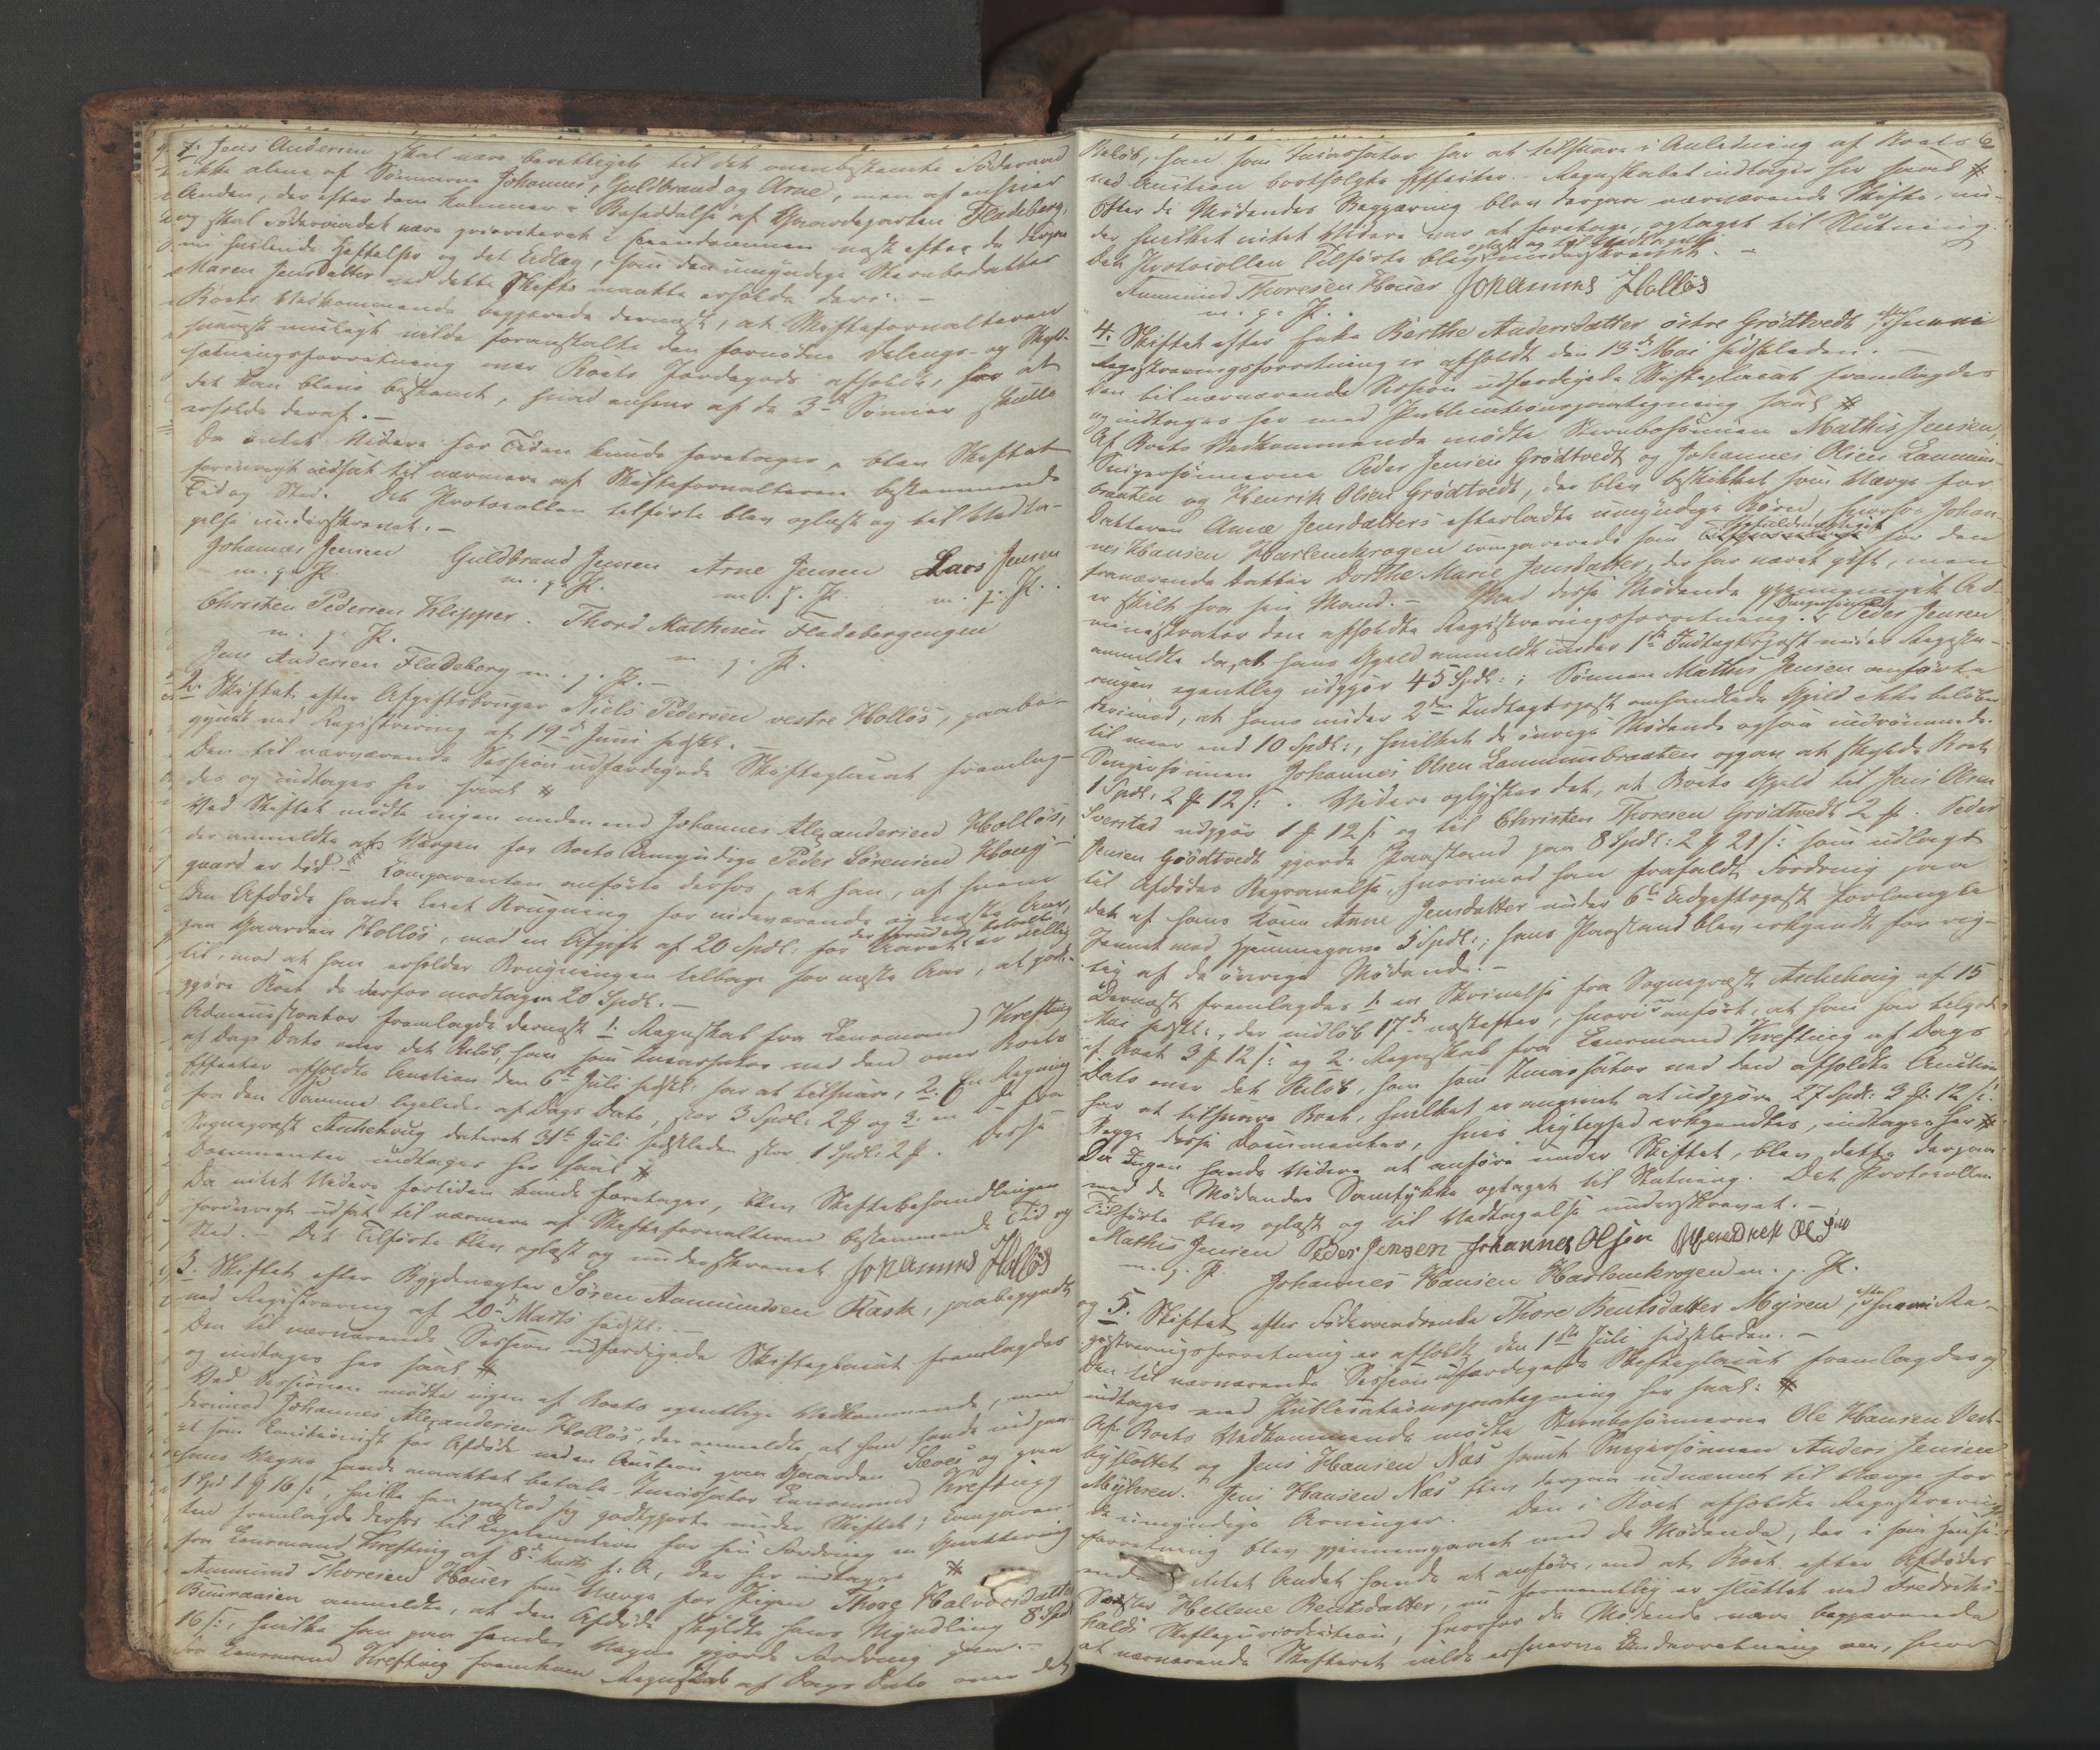 7. Jens Andersen skal være berettiget til det ovenbestemte Föderaad
ikke alene af Sönnerne Johannes, Guldbrand og Arne, men af enhver
Anden, der efter dem kommer i Besiddelse af Gaardeparten Fladeberg,
og skal Föderaadet være prioriteret i Eiendommen næst efter de derpaa
nu heftende Heftelser og det Udlæg, som den umyndige Sterbodatter
Maren Jensdatter ved dette Skifte maatte erholde deri. –
Boets Vedkommende begjærede dernæst, at Skifteforvalteren
snarest muligt vilde foranstalte den fornödne Delings- og Skyld-
sætningsforretning over Boets Jordegods afholdt, for at
det kan blive bestemt, hvad enhver af de 3de Sönner skulle
erholde deraf. –
Da intet Videre for Tiden kunde foretages, blev Skiftet
foreövrigt udsat til nærmere af Skifteforvalteren bestemmende
Tid og Sted. Det Protocollen tilförte blev oplæst og til Vedta-
gelse underskrevet. –
Johannes Jensen Guldbrand Jensen Arne Jensen Lars Jensen
m. p. P. m. p. P. m. p. P. m. p. P.
Christen Pedersen Klipper. Thord Mathesen Fladebergengen
m. p. P. m. p. P.
Jens Andersen Fladeberg m. p. P. –
2. Skiftet efter Afgiftsbruger Niels Pedersen vestre Hollös, paabe-
gyndt ved Registrering af 19de Juni sidstl. –
Den til nærværende Session udfærdigede Skifteplacat fremlag-
des og indtages her saal. #
Ved Skiftet mödte ingen anden end Johannes Alexandersen Hollös,
der anmeldte at Værgen for Boets Umyndige Peder Sörensen Houg-
gaard er död. – Comparenten anförte derhos, at han, af hvem
den Afdöde havde leiet Brugning for nærværende og næste Aar,
paa Gaarden Hollös, mod en Afgift af 20 Spdl. for Aaret er villig
til, mod at han erholder Brugningen tilbage for næste Aar, at god-
gjöre Boet de derfor modtagne 20 Spdl. –
Administrator fremlagde dernæst 1. Regnskab fra Lensmand Krefting
af Dags Dato over det Belöb, han som Incassator ved den over Boets
Effecter afholdte Auction den 6te Juli sidstl. har at tilsvare, 2. En Regning
fra den Samme ligeledes af Dags Dato, stor 3 Spdl. 2 # og 3. en Do fra
Sogneprest Aschehoug dateret 31te Juli sidstleden stor 1 Spdl. 2 #. Disse
Documenter indtages her saal. #
Da intet Videre fortiden kunde foretages, blev Skiftebehandlingen
foreövrigt udsat til nærmere af Skifteforvalteren bestemmende Tid og
Sted. – Det Tilförte blev oplæst og underskrevet Johannes Hollös
3. Skiftet efter Bygdenægter Sören Aamundsen Rask, paabegyndt
ved Registrering af 20de Marts sidstl. –
Den til nærværende Session udfærdigede Skifteplacat fremlagdes
og indtages her saal. #
Ved Sessionen mödte ingen af Boets egentlige Vedkommende, men
derimod Johannes Alexandersen Hollös, der anmeldte, at han havde indgaa-
et som Cautionist for Afdöde ved en Auction paa Gaarden og paa
hans Vegne havde maattet betale Incassator Lensmand Krefting
1 Spd 1 # 16 s, hvilke han paastod sig godtgjorte under Skiftet; Comparen-
ten fremlagde derhos til Legitimation for sin Fordring en Qvittering
fra Lensmand Krefting af 8de Marts f. A., der her indtages #
Aamund Thoresen Houer som Værge for Pigen Thore Halvorsdatter
anmeldte, at den Afdöde skyldte hans Myndling 8 Spd.
16 s, hvilke han paa hendes Vegne gjorde Fordring paa. –
Fra Lensmand Krefting fremkom Regnskab af Dags Dato over det
6
Belöb, han som Incassator har at tilsvare i Anledning af Boets
ved Auction bortsolgte Effecter. – Regnskabet indtages her saal. #
Efter de Mödendes Begjæring blev derpaa nærværende Skifte, un-
der hvilket intet Videre var at foretage, optaget til Slutning.
Det Protocollen Tilförte blev oplæst og til Vedtagelse underskrevet. –
Aamund Thoresen Houer Johannes Hollös
m. p. P.
4. Skiftet efter Enke Berthe Andersdatter östre Grödtvedt, efter hvem
Registreringsforretning er afholdt den 13de Mai sidstleden. –
Den til nærværende Session udfærdigede Skifteplacat fremlagdes
og indtages her med Publicationspaategning saal. #
Af Boets Vedkommende mödte Sterbosönnen Mathis Jensen,
Svigersönnerne Peder Jensen Grödtvedt og Johannes Olsen Lammens-
braaten og Henrik Olsen Grödtvedt, der blev beskikket som Værge for
Datteren Anne Jensdatters efterladte umyndige Börn, hvorhos Johan-
nes Hansen Harlemkrogen comparerede som Befuldmægtiget for den
fraværende Datter Dorthe Marie Jensdatter, der har været gift, men
er skilt fra sin Mand. – Med disse Mödende gjennemgik Ad-
ministrator den afholdte Registreringsforretning. Svigersönnen Peder Jensen
anmeldte da, at hans Gjæld anmeldt under 1ste Indtægtspost under Registre-
ringen egentlig udgjör 45 Spdl.; Sönnen Mathis Jensen anförte
derimod, at hans under 2den Indtægtspost omhandlede Gjæld ikke belöber
til mere end 10 Spdl., hvilket de övrige Mödende ogsaa indrömmede.
Svigersönnen Johannes Olsen Lammensbraaten opgav at skylde Boet
1 Spdl. 2 # 12 s. Videre oplystes det, at Boets Gjæld til Jens Olsen
Sverstad udgjör 1 # 12 s og til Christen Thoresen Grödtvedt 2 #. Peder
Jensen Grödtvedt gjorde Paastand paa 8 Spdl. 2 # 21 s som udlagt
til Afdödes Begravelse, hvorimod han frafaldt Fordring paa
det af hans Kone Anne Jensdatter under 6te Udgiftspost forlangte
Jevnet med Hjemmegave 5 Spdl.; hans Paastand blev erkjendt for rig-
tig af de övrige Mödende. –
Dernæst fremlagdes 1. en Skrivelse fra Sogneprest Aschehoug af 15
Mai sidstl., der indlöb 17de næstefter, hvori er anfört, at han har tilgode
af Boet 3 # 12 s og 2. Regnskab fra Lensmand Krefting af Dags
Dato over det Belöb, han som Incassator ved den afholdte Auction
har at tilsvare Boet, hvilket er angivet at udgjöre 27 Spdl. 3 # 12 s.
Begge disse Documenter, hvis Rigtighed erkjendtes, indtages her #
Da Ingen havde Videre at anföre under Skiftet, blev dette derpaa
med de Mödendes Samtykke optaget til Slutning. Det Protocollen
Tilförte blev oplæst og til Vedtagelse underskrevet. –
Mathis Jensen Peder Jensen Johannes Olsen Hendrek Olsen
m. p. P. Johannes Hansen Harlemkrogen m. p. P.
og 5. Skiftet efter Föderaadsenke Thore Bentsdatter Myren, efter hvem Re-
gistreringsforretning er afholdt den 1ste Juli sidstleden. –
Den til nærværende Session udfærdigede Skifteplacat fremlagdes og
indtages med Publicationspaategning her saal. #
Af Boets Vedkommende mödte Sterbosönnerne Ole Hansen Vest-
byslottet og Jens Hansen Næs samt Svigersönnen Anders Jensen
Myhren. Jens Hansen Næs blev derpaa udnævnt til Værge for
de umyndige Arvinger. Den i Boet afholdte Registrerings-
forretning blev gjennemgaaet med de Mödende, der i saa Hense-
ende intet Andet havde at anföre, end at Boet efter Afdödes
Söster Hellene Bentsdatter, nu formeentlig er sluttet ved Fredriks-
halds Skiftejurisdiction, hvorfor de Mödende vare begjærende
at nærværende Skifteret vilde erhverve Underretning om, hvor